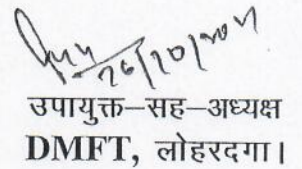 26/10/2024
उपायुक्त–सह–अध्यक्ष
DMFT, लोहरदगा।